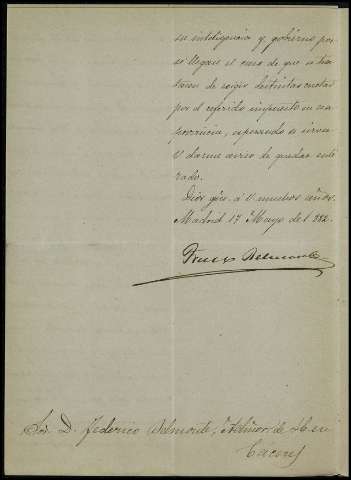 su inteligencia y gobierno por
si llegase el caso de que se tra
tasen de exigir distintas cuotas
por el referido impuesto en esa
provincia, esperando se sirva
V darme aviso de quedar ente
rado.
Dios gue. á V muchos años.
Madrid 17 Mayo de 1882.
Belmonte
Sor. D. Federico Belmonte, de
Caceres